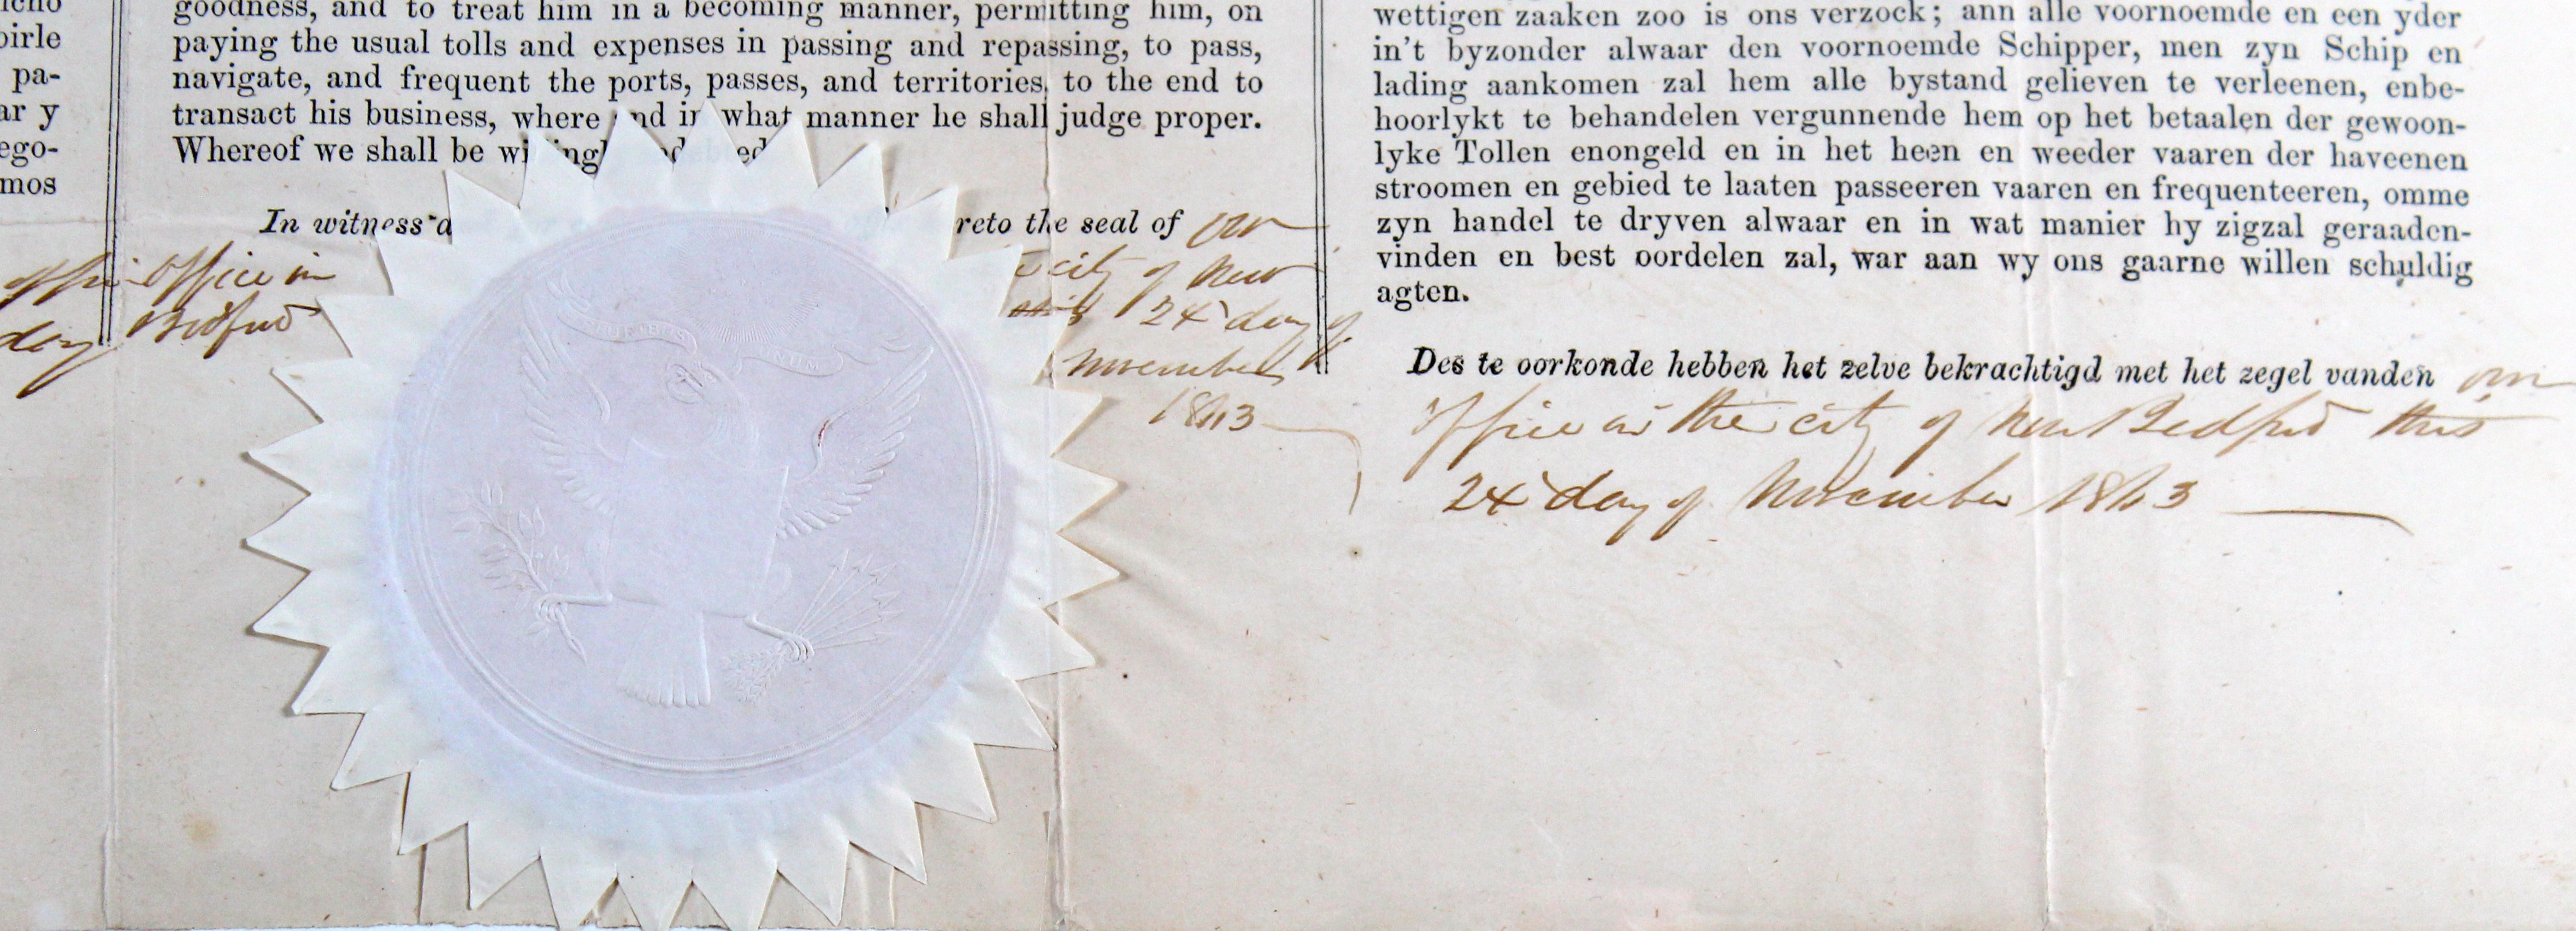 oirle
pa-
ar y
ego-
mos
day
goodness, and to treat him in a becoming manner, permitting him, on
paying the usual tolls and expenses in passing and repassing, to pass,
navigate, and frequent the ports, passes, and territories, to the end to
transact his business, where and in what manner he shall judge proper.
Whereof we shall be
In witness reto the seal of our
office in city of New
Bedford this 24 day of
November
1863
wettigen zaaken zoo is ons verzock; ann alle voornoemde en een yder
in't byzonder alwaar den voornoemde Schipper, men zyn Schip en
lading aankomen zal hem alle bystand gelieven te verleenen, enbe-
hoorlykt te behandelen vergunnende hem op het betaalen der gewoon-
lyke Tollen enongeld en in het heen en weeder vaaren der haveenen
stroomen en gebied te laaten passeeren vaaren en frequenteeren, omme
zyn handel te dryven alwaar en in wat manier hy zigzal geraaden-
vinden en best oordelen zal, war aan wy ons gaarne willen schuldig
agten.
Des te oorkonde hebben het zelve bekrachtigd met het zegel vanden our
office in the city of New Bedford this
24 day of November 1863